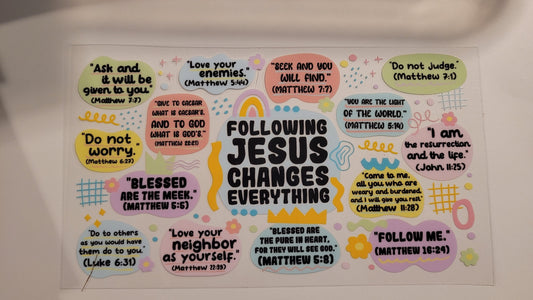 "Ask and
it will be
given to you."
(Matthew 7:7)
"Love your
enemies."
(Matthew 5:44)
"SEEK AND YOU
WILL FIND."
(MATTHEW 7:7)
"Do not judge."
(Matthew 7:1)
"GIVE TO CAESAR
WHAT IS CAESAR'S,
AND TO GOD
WHAT IS GOD'S."
(MATTHEW 22:21)
"YOU ARE THE LIGHT
OF THE WORLD."
(MATTHEW 5:14)
"Do not
worry."
(Matthew 6:27)
FOLLOWING
JESUS
CHANGES
EVERYTHING
"I am
the resurrection
and the life."
(John 11:25)
"BLESSED
ARE THE MEEK."
(MATTHEW 5:5)
"Come to me,
all you who are
weary and burdened,
and I will give you rest."
(Matthew 11:28)
"Do to others
as you would have
them do to you."
(Luke 6:31)
"Love your
neighbor
as yourself."
(Matthew 22:39)
"BLESSED ARE
THE PURE IN HEART,
FOR THEY WILL SEE GOD."
(MATTHEW 5:8)
"FOLLOW ME."
(MATTHEW 16:24)